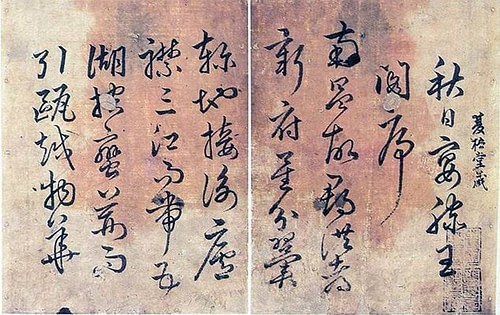 秋日宴滕王
閣序
南昌故郡洪都
新府星分翼
軫地接衡廬
襟三江而帶五
湖控蠻荊而
引甌越物華
梧堂藏